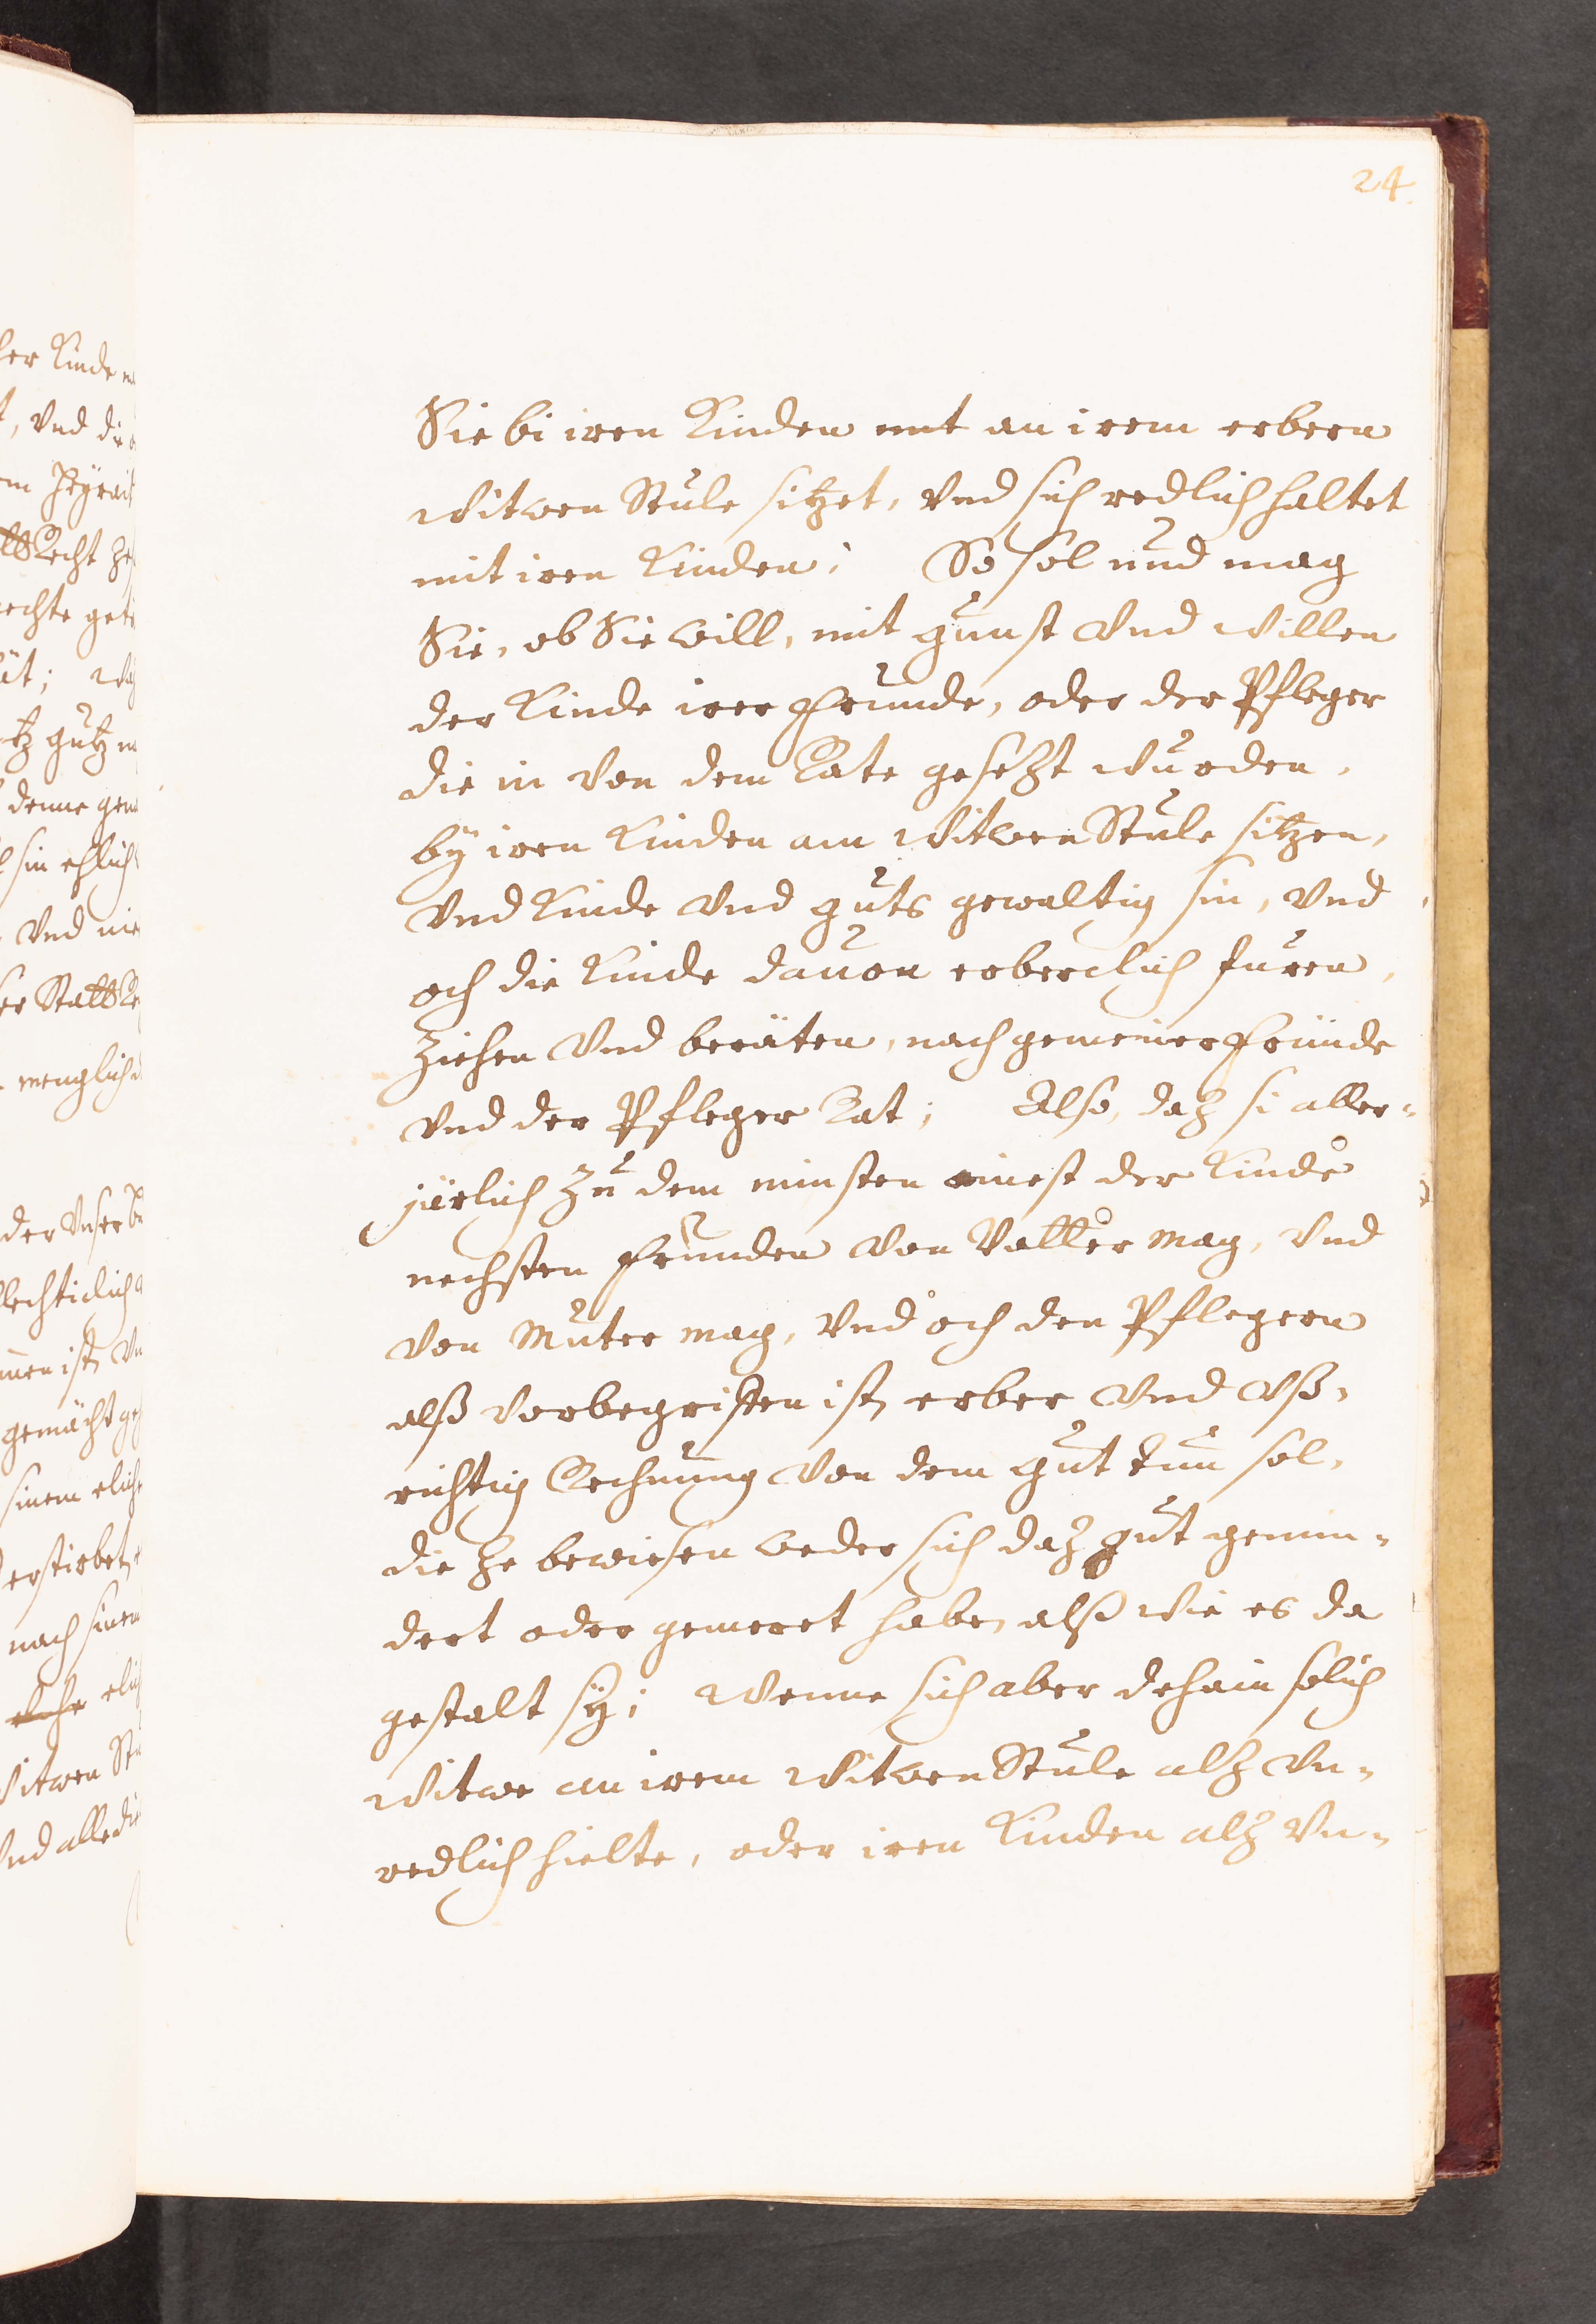 24.
Sie bi iren Kinden mit an irem erbern
Witwen Stůle sitzet, vnd sich redlich haltet
mit iren Kinden; So sol und mag
Sie, ob Sie will, mit gunst vnd Willen
der Kinde irer Frunde, oder der Pfleger
die in von dem Rate gesetzt wurden,
bÿ iren Kinden am Witwen Stůle sitzen,
vnd Kinde vnd gůts gewaltig sin, vnd
och die Kinde dauon erberclich furen,
Ziehen vnd beräten, nach gemeiner Fründe
vnd der Pfleger Rat; Also, daz si aller-
järlich Zu dem minsten einest der Kinde
nechsten Frunden von Vatter mag, vnd
von Můter mag, vnd och den Pflegern
alß vorbegriffen ist, erber vnd vß-
richtig Rechnung von dem gůt tun sol,
die ze bewisen weder sich daz gůt gemin-
dert oder gemeret habe, alß wie es da
gestalt sÿ; Wenne sich aber dehain solich
Witwe an irem Witwen Stůle alz vn-
redlich hielte, oder iren Kinden alz vn-